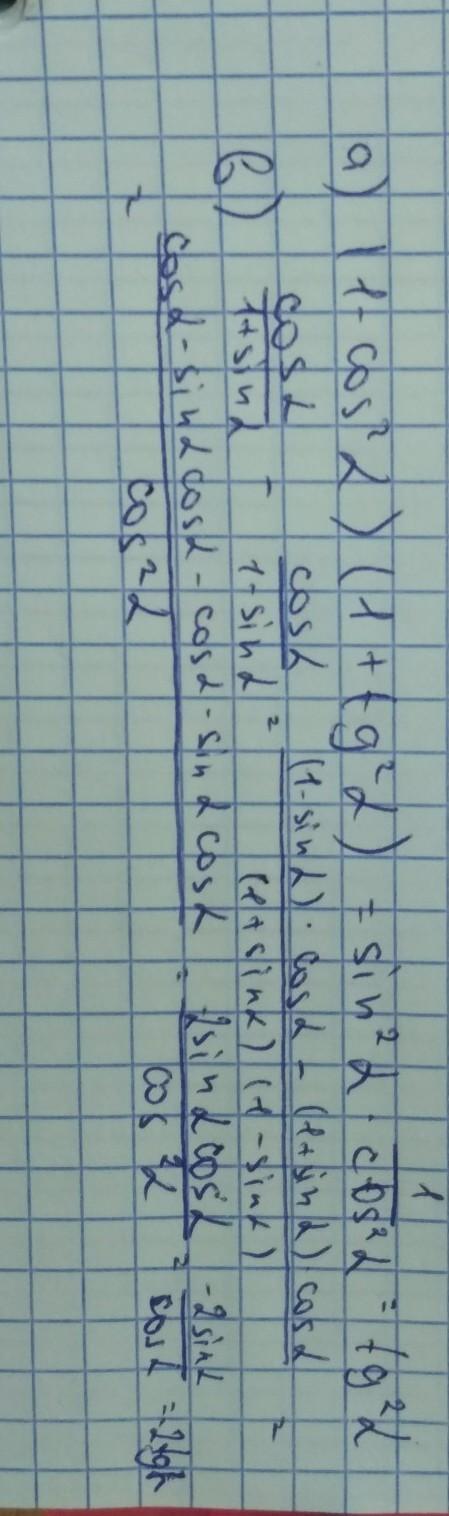 a) (1 - cos²α)(1 + tg²α) = sin²α · 1/cos²α = tg²α
б) cosα/(1+sinα) - cosα/(1-sinα) = ((1-sinα)·cosα - (1+sinα)·cosα)/((1+sinα)(1-sinα)) =
= (cosα - sinα cosα - cosα - sinα cosα)/cos²α = -2sinα cosα/cos²α = -2sinα/cosα = -2tgα